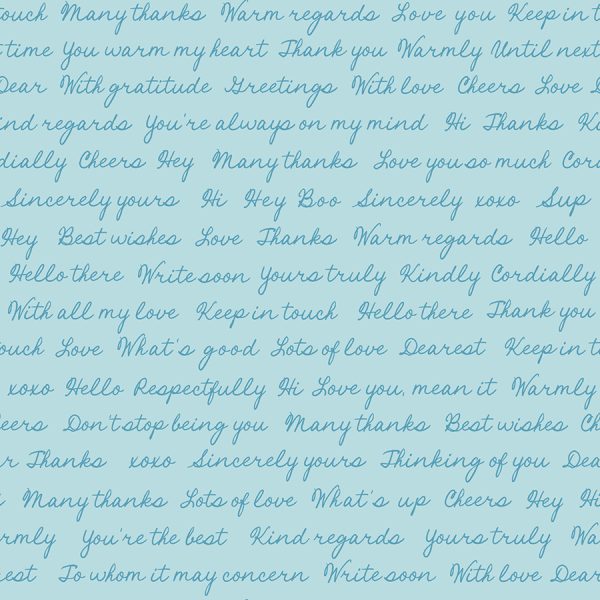 ouch Many thanks Warm regards Love you Keep in t
time You warm my heart Thank you Warmly Until next
Dear With gratitude Greetings With love Cheers Love
ind regards You're always on my mind Hi Thanks K
dially Cheers Hey Many thanks Love you so much Cord
Sincerely yours Hi Hey Boo Sincerely xoxo Sup
Hey Best wishes Love Thanks Warm regards Hello
Hello there Write soon Yours truly Kindly Cordially
With all my love Keep in touch Hello there Thank you
ouch Love What's good Lots of love Dearest Keep in t
xoxo Hello Respectfully Hi Love you, mean it Warmly
eers Don't stop being you Many thanks Best wishes Ch
r Thanks xoxo Sincerely yours Thinking of you Dea
Many thanks Lots of love What's up Cheers Hey Hi
rmly You're the best Kind regards Yours truly Wa
rest To whom it may concern Write soon With love Dear